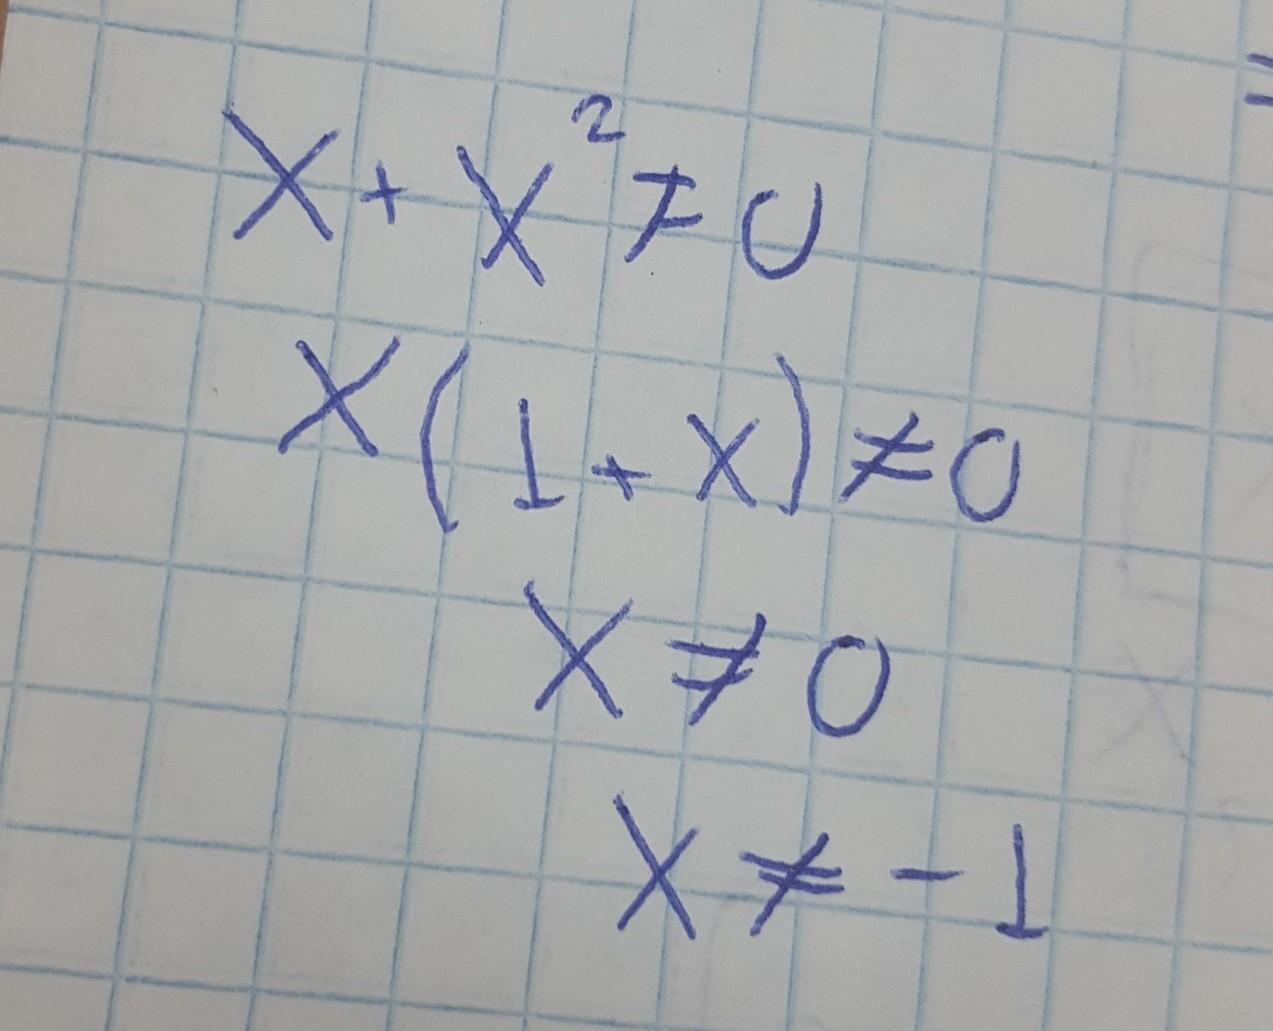 x + x² ≠ 0
x(1 + x) ≠ 0
x ≠ 0
x ≠ -1